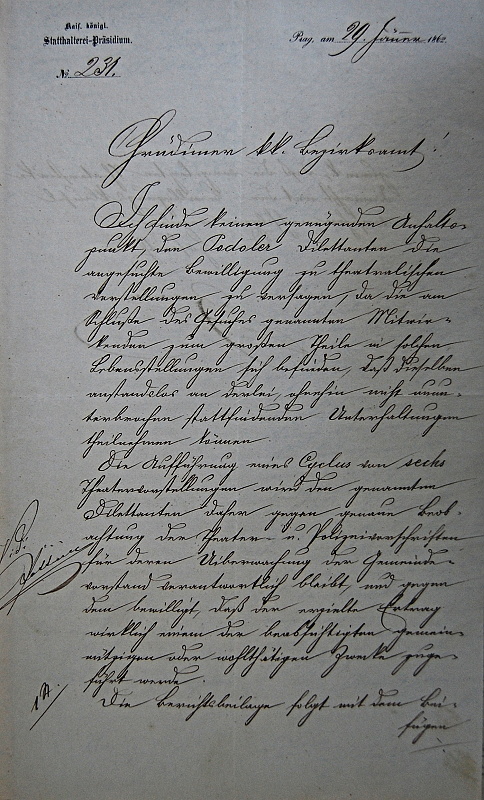 Kais. königl.
Statthalterei-Präsidium.
No 231.
Prag, am 29 Jänner 1862
Chrudimer kk. Bezirksamt!
Ich finde keinen genügenden Anhalts-
punkt, den Podoler Dilettanten die
angesuchte Bewilligung zu theatralischen
Vorstellungen zu versagen, da die am
Schluße des Gesuches genannten Mitwir-
kenden zum großen Theile in solchen
Lebensstellungen sich befinden, daß dieselben
anstandslos an derlei, ohnehin nicht unun-
terbrochen stattfindenden Unterhaltungen
theilnehmen können.
Die Aufführung eines Cyclus von sechs
Theatervorstellungen wird den genannten
Dilettanten daher gegen genaue Beob-
achtung der Theater- u. Polizeivorschriften
für deren Uiberwachung der Gemeinde-
vorstand verantwortlich bleibt, und gegen
dem bewilligt, daß der erzielte Ertrag
wirklich einem der beabsichtigten gemein-
nützigen oder wohlthätigen Zwecke zuge-
führt werde.
Die Berichtsbeilage folgt mit dem Bei-
fügen